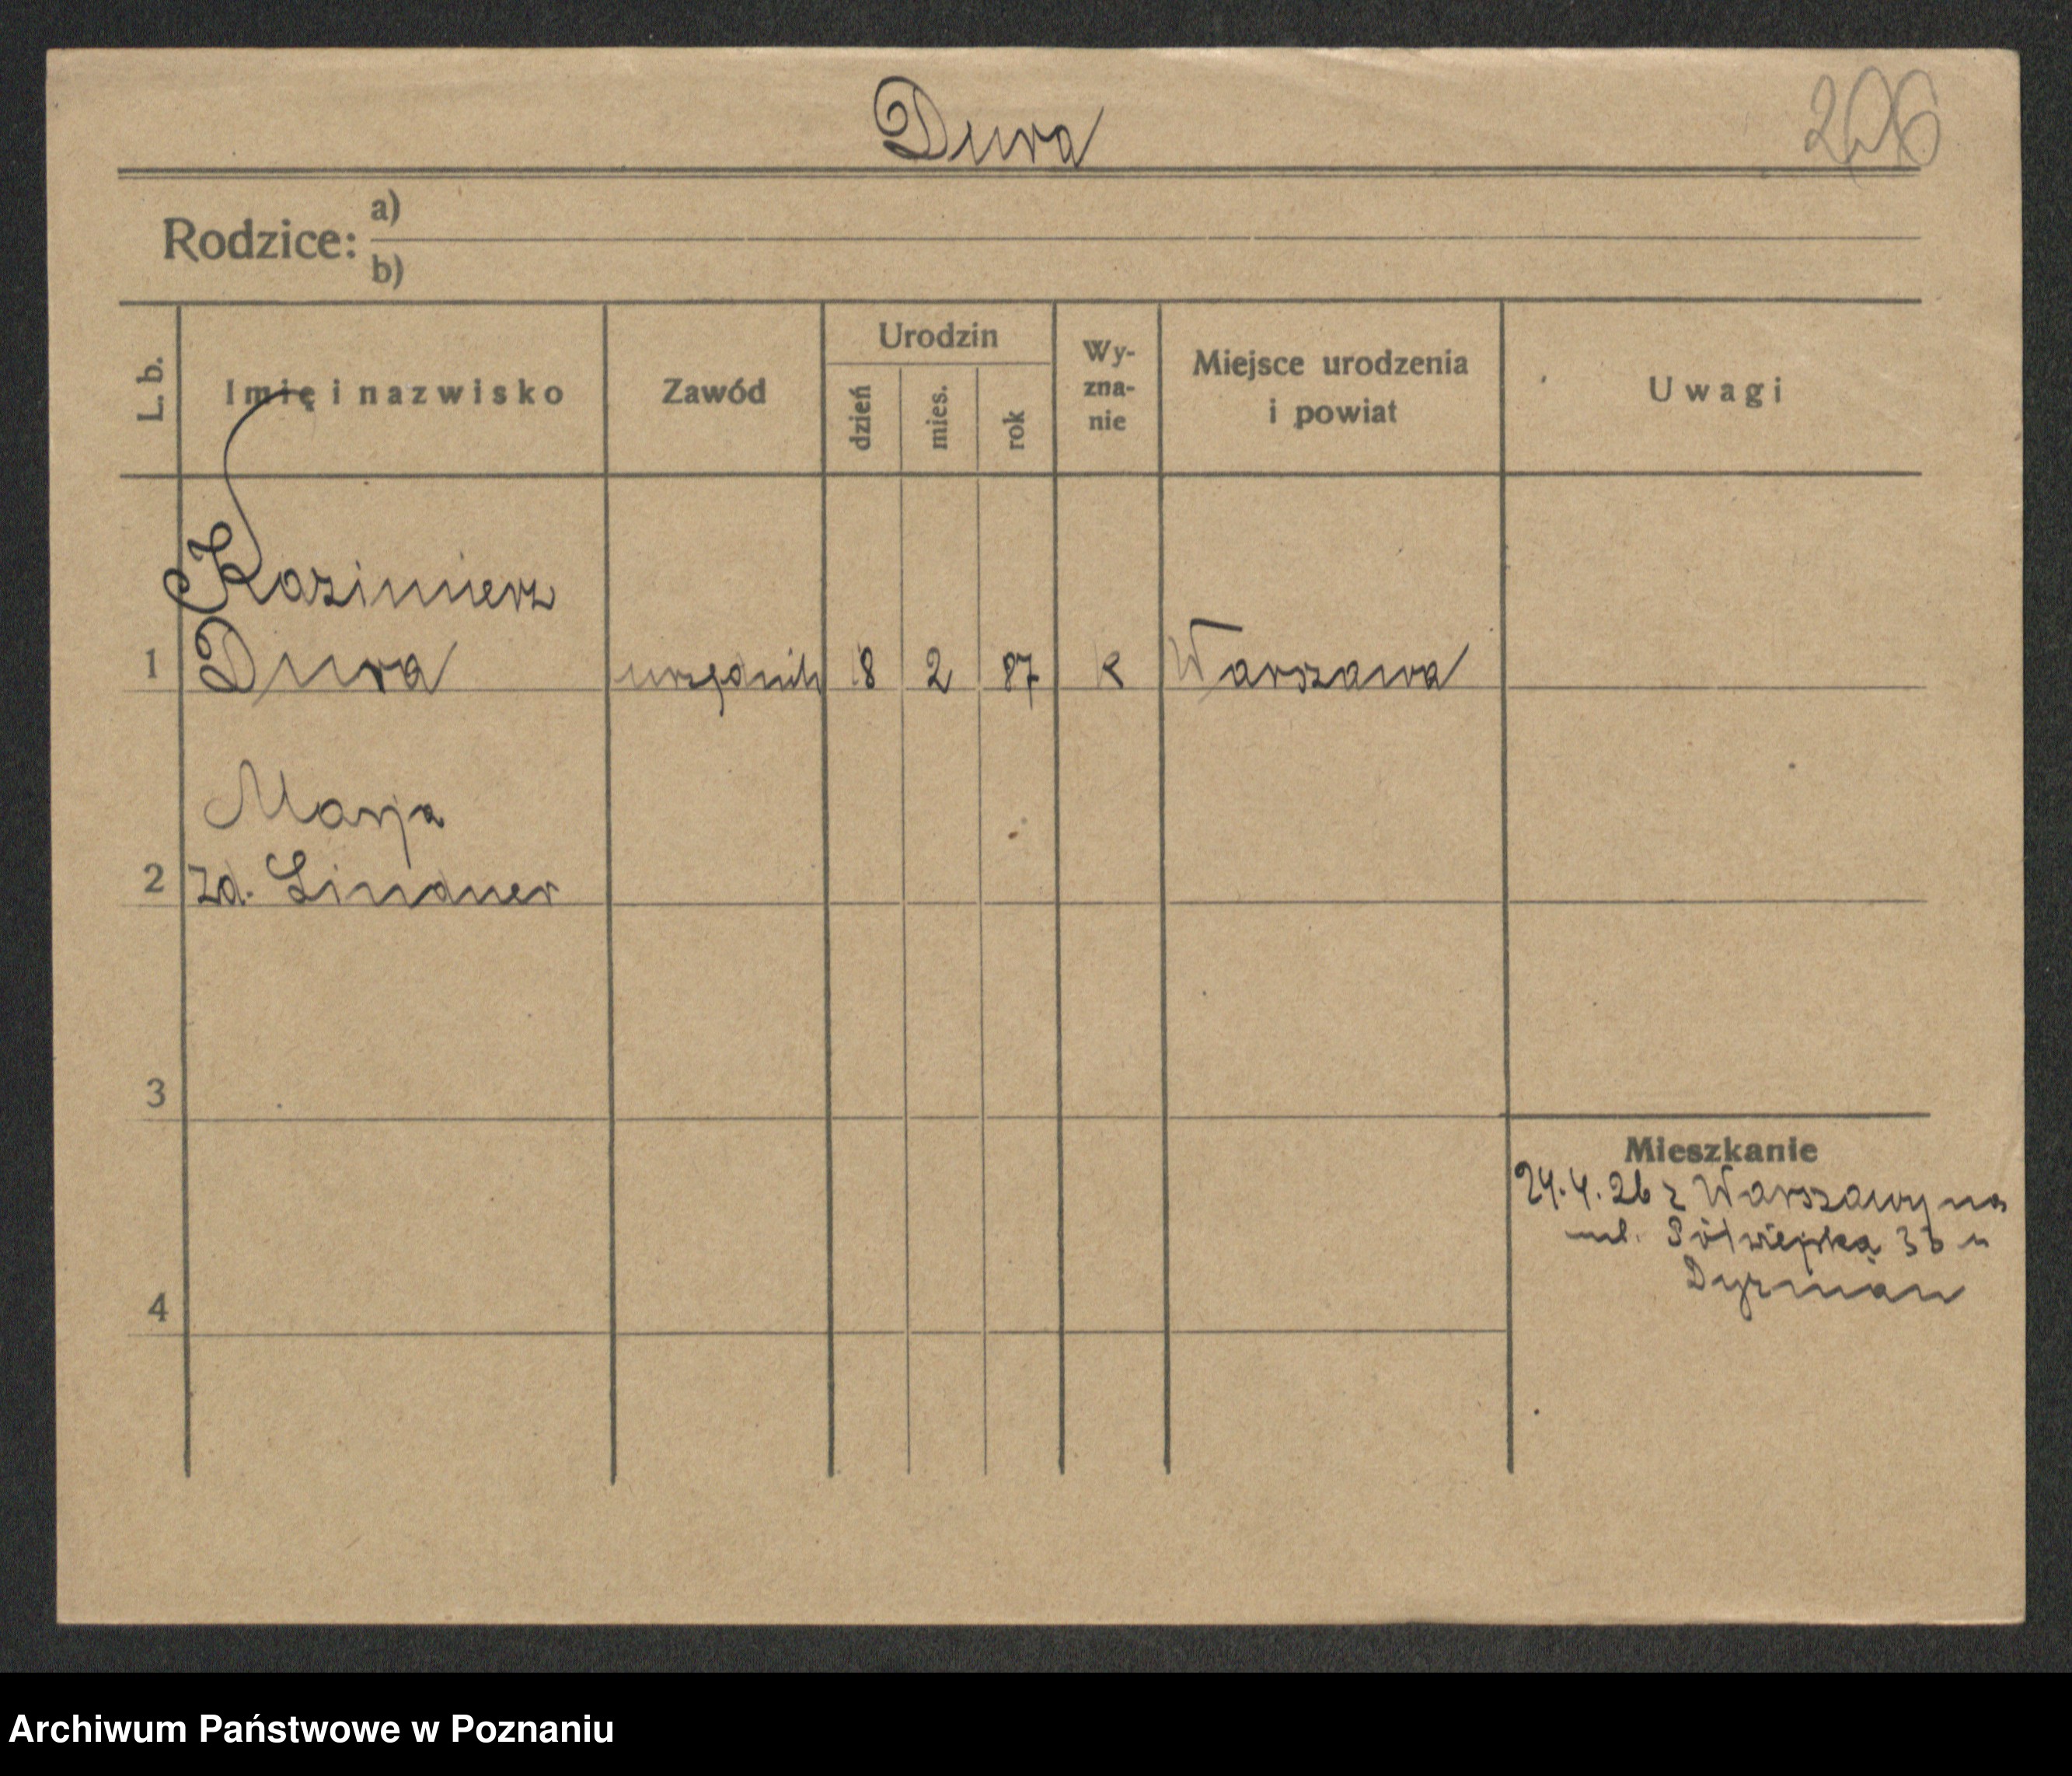 Dura
206
Rodzice: a)
b)
L. b.
Imię i nazwisko
Zawód
Urodzin
dzień
mies.
rok
Wy-
zna-
nie
Miejsce urodzenia
i powiat
Uwagi
Kazimierz
1 Dura urzędnik 8 2 87 K Warszawa
Marja
2 zd. Lindner
3
Mieszkanie
24.4.26 z Warszawy na
ul. Półwiejska 3 u
4
Archiwum Państwowe w Poznaniu